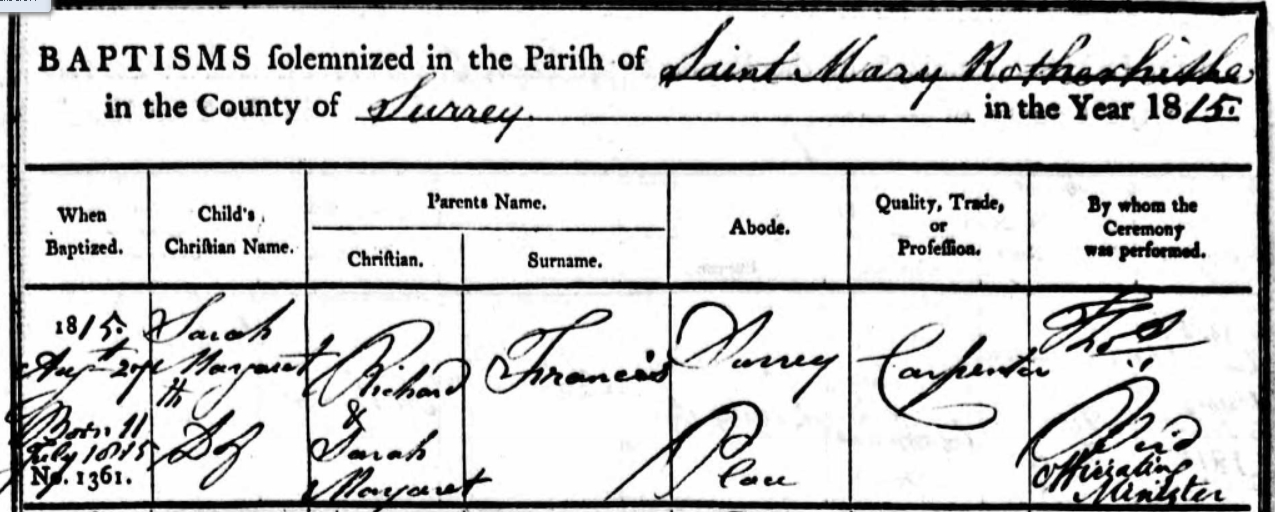 BAPTISMS ſolemnized in the Pariſh of Saint Mary Rotherhithe
in the County of Surrey. in the Year 1815.
When
Baptized.
Child's
Chriſtian Name.
Parents Name.
Chriſtian.
Surname.
Abode.
Quality, Trade,
or
Profeſſion.
By whom the
Ceremony
was performed.
1815.
Augst
Born 11th
July 1815
No. 1361.
Sarah
Margaret
Dr
Richard
&
Sarah
Margaret
Francis
Surrey
Place
Carpenter
Thos
Officiating
Minister